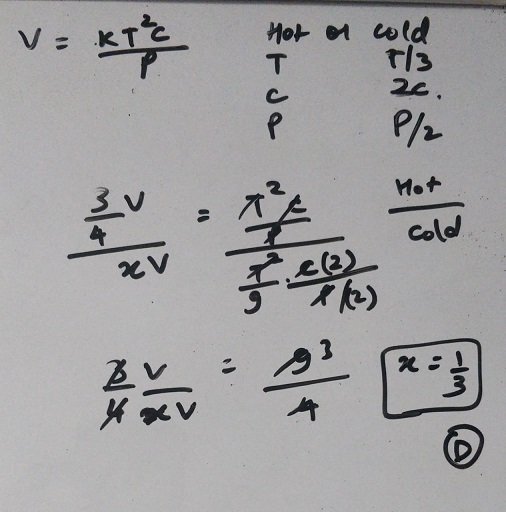 V = KT²C / P
Hot or cold
T T/3
C 2C.
P P/2
3/4 V / xV = T²C/P / T²/9 · C(2)/P/(2)
Hot / cold
3/4 V/xV = 9 3/4
x = 1/3
D